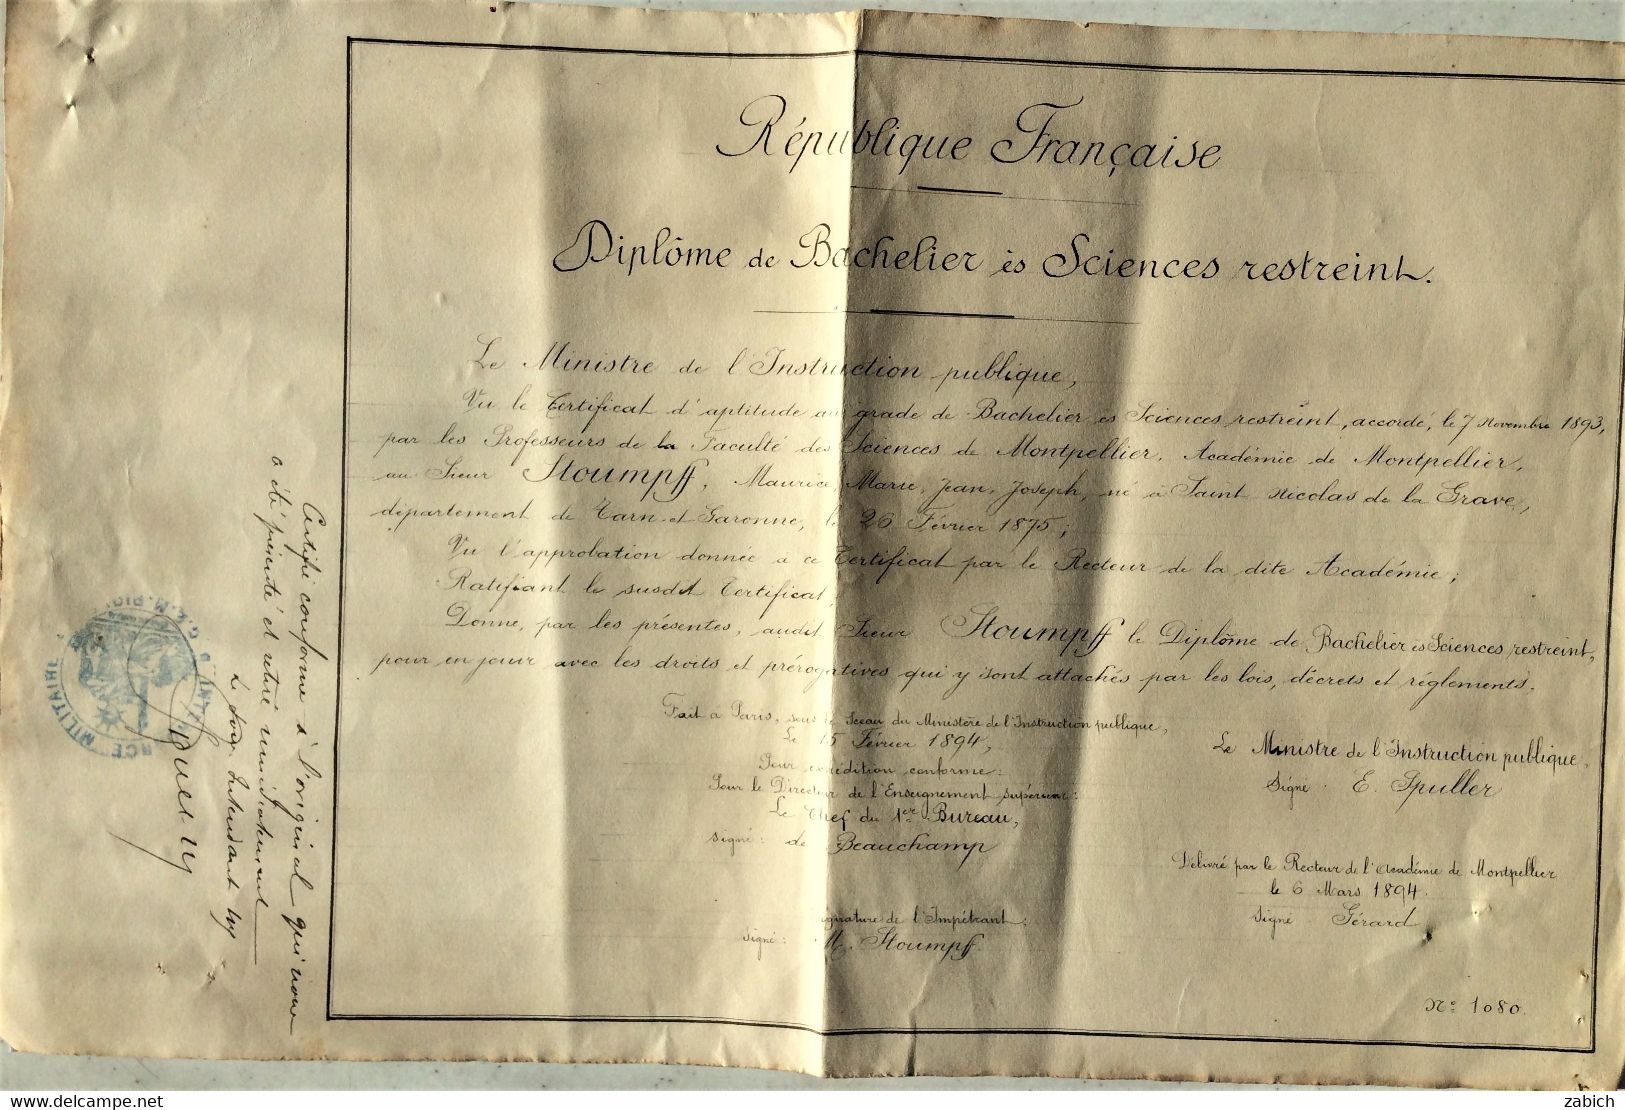 République Française
Diplôme de Bachelier ès Sciences restreint.
Le Ministre de l'Instruction publique,
Vu le Certificat d'aptitude au grade de Bachelier ès Sciences restreint, accordé, le 7 Novembre 1893,
par les Professeurs de la Faculté des Sciences de Montpellier, Académie de Montpellier,
au Sieur Stoumpff, Maurice, Marie, Jean, Joseph, né à Saint Nicolas de la Grave,
département de Tarn-et-Garonne, le 26 Février 1875;
Vu l'approbation donnée à ce Certificat par le Recteur de la dite Académie;
Ratifiant le susdit Certificat,
Donne, par les présentes, audit Sieur Stoumpff le Diplôme de Bachelier ès Sciences restreint,
pour en jouir avec les droits et prérogatives qui y sont attachés par les lois, décrets et réglements.
Fait à Paris, sous le Sceau du Ministère de l'Instruction publique,
Le 15 Février 1894,
Pour expédition conforme:
Pour le Directeur de l'Enseignement supérieur:
Le Chef du 1er Bureau,
Signé: de Beauchamp
Le Ministre de l'Instruction publique,
Signé. E. Spuller
Délivré par le Recteur de l'Académie de Montpellier
le 6 Mars 1894.
Signé Gérard
Signature de l'Impétrant:
Signé: M. Stoumpff.
N° 1080.
Certifié conforme à l'original qui nous
a été présenté et retiré
Le Sous Intendant
MILITAIRE
zabich